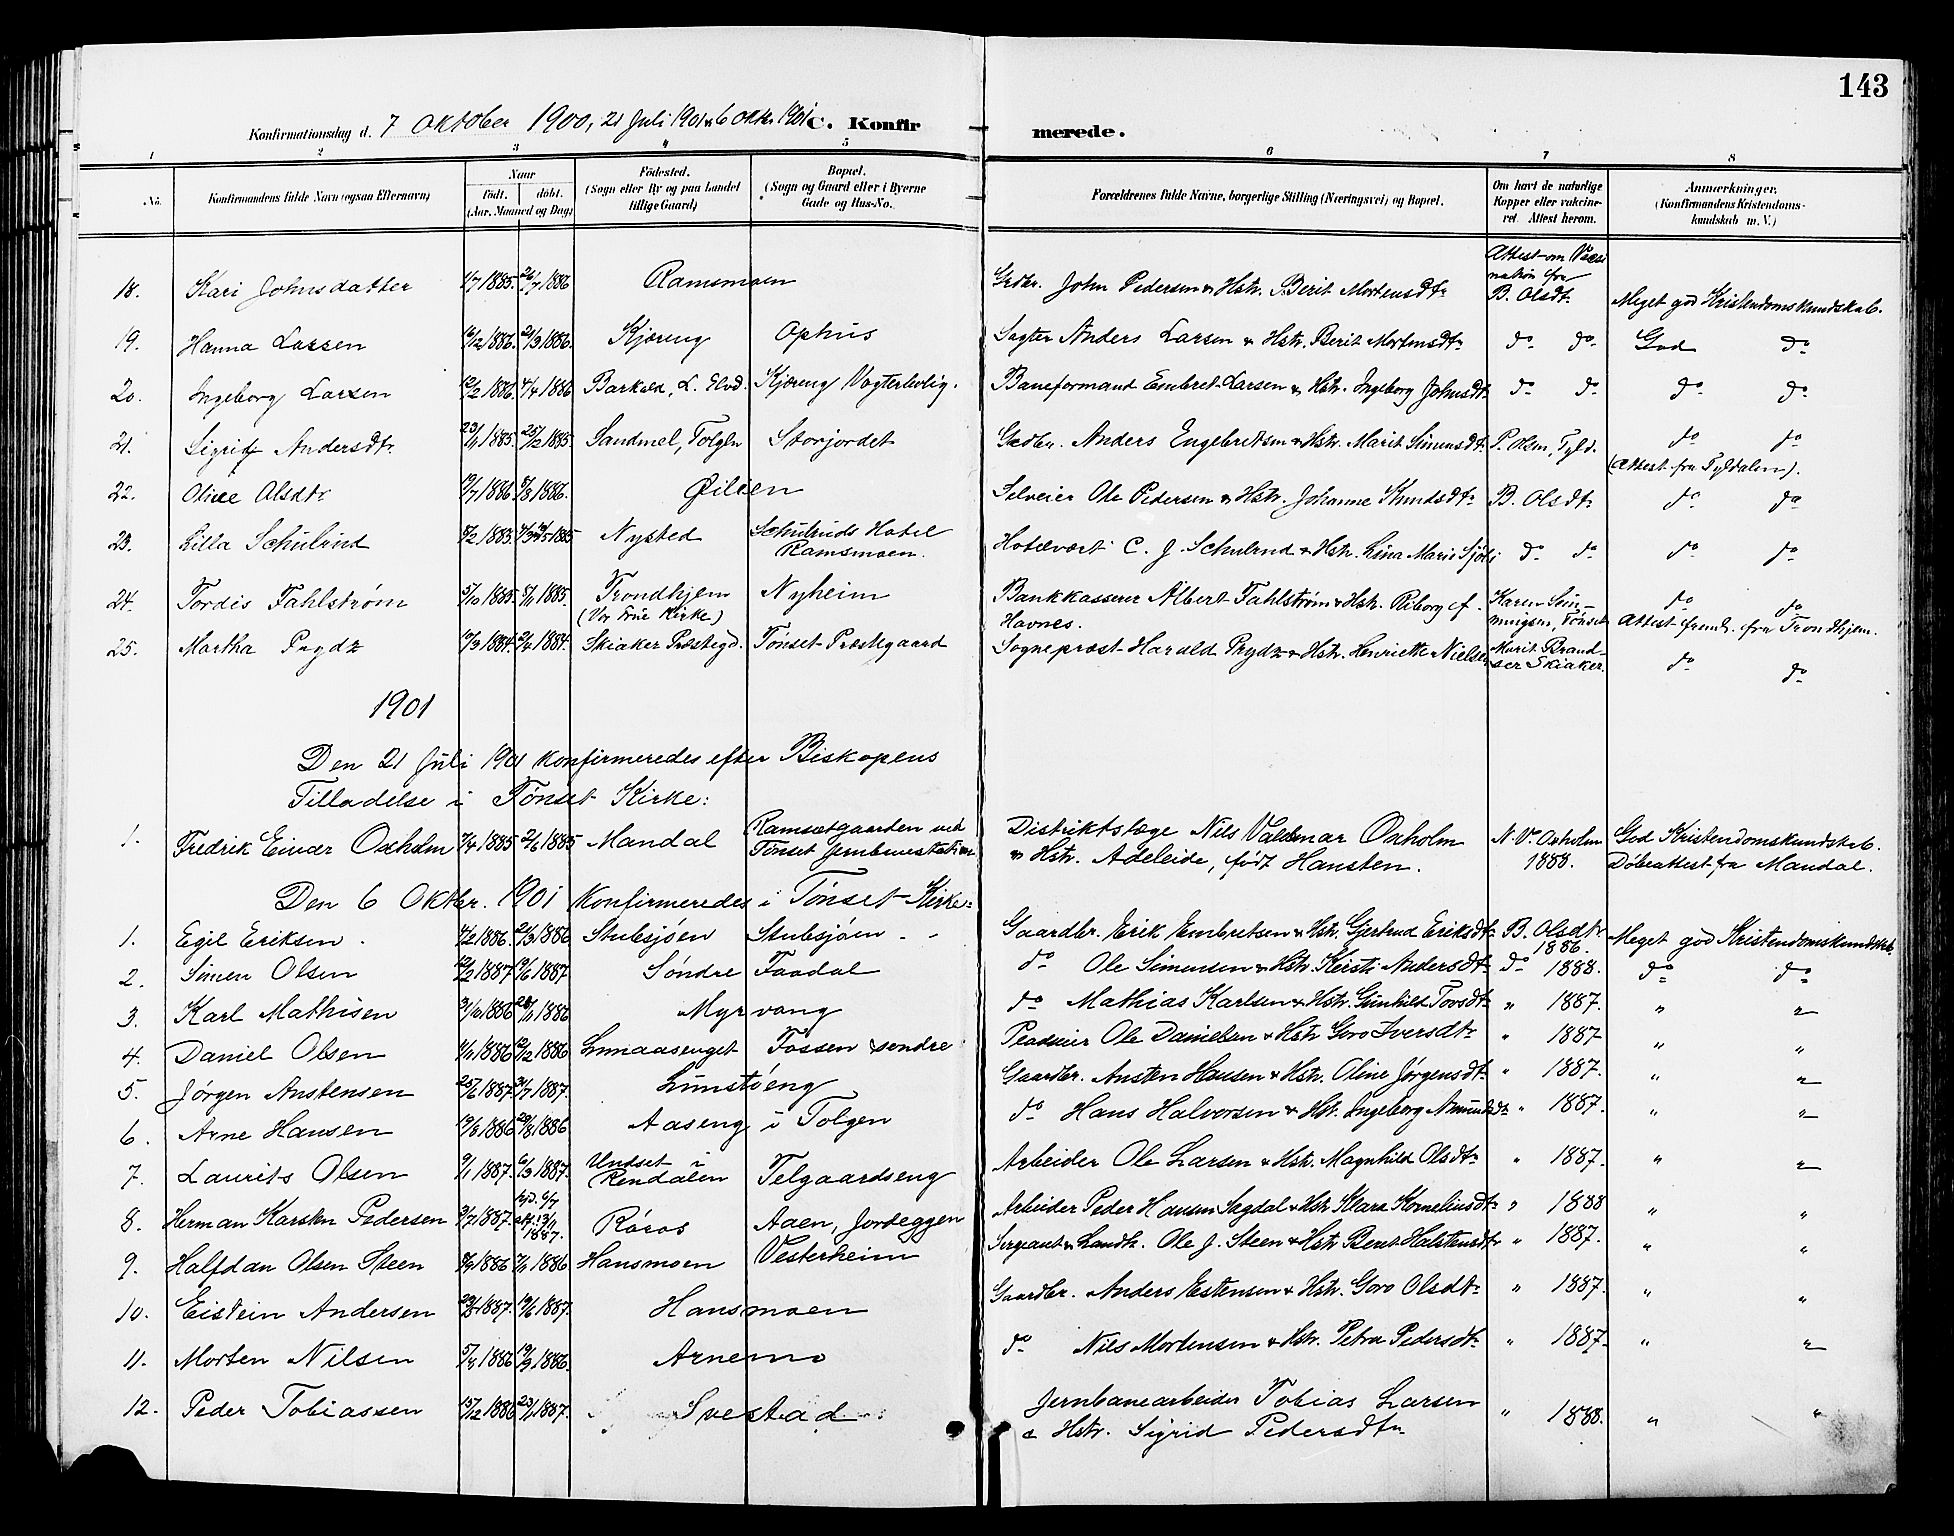 143
Konfirmationsdag d. 7 Oktober 1900, 21 Juli 1901 & 6 Oktbr 1901 C. Konfirmerede.
1 2 3 4 5 6 7 8
No.
Konfirmandens fulde Navn (ogsaa Efternavn)
Naar
født. døbt.
(Aar, Maaned og Dag)
Fødested.
(Sogn eller By og paa Landet
tillige Gaard)
Bopæl.
(Sogn og Gaard eller i Byerne
Gade og Hus-No.
Forældrenes fulde Navne, borgerlige Stilling (Næringsvei) og Bopæl.
Om havt de naturlige
Kopper eller vakcine-
ret. Attest herom.
Anmærkninger.
(Konfirmandens Kristendoms-
kundskab m. V.)
18. Kari Johnsdatter 1/7 1885. 26/7 1886 Ramsmoen Grdbr. John Pedersen & Hstr. Berit Mortensdtr Attest om Vacci nation fra B. Olsdtr. Meget god Kristendomskundskab.
19. Hanna Larsen 16/12 1886. 21/3 1886. Kjøreng Ophus Sagter Anders Larsen & Hstr. Berit Mortensdtr do do God do
20. Ingeborg Larsen 12/2 1886. 4/4 1886 Barkald, L. Elvd. Kjøreng Vogterbolig. Baneformand Embret Larsen & Hstr. Ingeborg Johnsdtr do do do do
21. Sigrid Andersdtr. 23/11 1885. 25/12 1885 Sandmel, Tolgen Storjordet Grdbr. Anders Engebretsen & Hstr. Marit Simensdtr P. Olsen, Tyld. do do
(Attest fra Tyldalen).
22. Oline Olsdtr 1886. 1886. Øilien Selveier Ole Pedersen & Hstr. Johanne Knudsdtr B. Olsdtr. do do
23. Lilla Schulrud 1885. 1885 Nysted Schulruds Hotel Ramsmoen. Hotelvært C. J. Schulrud & Hstr. Lina Marie do do do do
24. Tordis Fahlstrøm 5/10 1885. 1885. Trondhjem (Vor Frue Kirke) Nyheim Bankkasserer Albert Fahlstrøm & Hstr. Riborg f. Havnes. Karen Tønset do do
Attest fremk. fra Trondhjem.
25. Martha Prydz 1884. 1884. Skiaker Præstegd. Tønset Præstegaard Sogneprest Harald Prydz & Hstr. Henriette Nielsen Marit Brandser Skiaker. do do
1901
Den 21 Juli 1901 konfirmeredes efter Biskopens
Tilladelse i Tønset Kirke:
1. Fredrik Einar Oxholm 1885 2/6 1885 Mandal Ramsøtgaarden ved Tønset Jernbanestation Distriktslæge Nils Valdemar Oxholm & Hstr. Adeleide, født Hansten. N. V. Oxholm 1888. God Kristendomskundskab. Døbeattest fra Mandal.
Den 6 Oktbr. 1901 konfirmeredes i Tønset Kirke:
1. Egil Eriksen. 1886. 21/3 1886 Stubsjøen Stubsjøen Gaardbr. Erik Embretsen & Hstr. Gjertrud Eriksdtr B. Olsdtr 1886. Meget god Kristendomskundskab.
2. Simen Olsen 1887 1887 Søndre Faadal do Ole Simensen & Hstr. Kirsti Andersdtr do 1888. do do
3. Karl Mathisen 31/10 1886 28/11 1886 Myrvang do Mathias Karlsen & Hstr. Gunhild Torsdtr " 1887. " "
4. Daniel Olsen 1886 1886 Lunaasenget Fossen søndre Pladseier Ole Danielsen & Hstr Goro Iversdtr " 1887 " "
5. Jørgen Anstensen 25/6 1887 31/7 1887. Lunstøeng Gaardbr. Ansten Hansen & Hstr. Oline Jørgensdtr " 1887. " "
6. Arne Hansen 1886 29/8 1886 Aaseng i Tolgen do Hans Halvorsen & Hstr. Ingeborg Amundsdtr " 1887. " "
7. Laurits Olsen 9/1 1887. 6/3 1887. Undset i Rendalen Telgaardseng Arbeider Ole Larsen & Hstr. Magnhild Olsdtr " 1887. " "
8. Herman Karsten Pedersen 3/7 1887. hjd. 6/7 1887. Røros Aaen, Jordeggen Arbeider Peder Hansen Sagdal & Hstr Klara Korneliusdtr " 1888 " "
9. Halfdan Olsen Steen 1886 7/11 1886 Hansmoen Vesterheim Sergeant & Landh. Ole J. Steen & Hstr Beret Halstensdtr " 1887. " "
10. Eistein Andersen 1887. 19/6 1887. Hansmoen Gaardbr. Anders Estensen & Hstr. Goro Olsdtr " 1887. " "
11. Morten Nilsen 1886 19/9 1886. Arnemo do Nils Mortensen & Hstr. Petra Pedersdtr " 1887. " "
12. Peder Tobiassen 15/12 1886 23/1 1887. Svestad Jernbanearbeider Tobias Larsen & Hstr. Sigrid Pedersdtr " 1888. " "